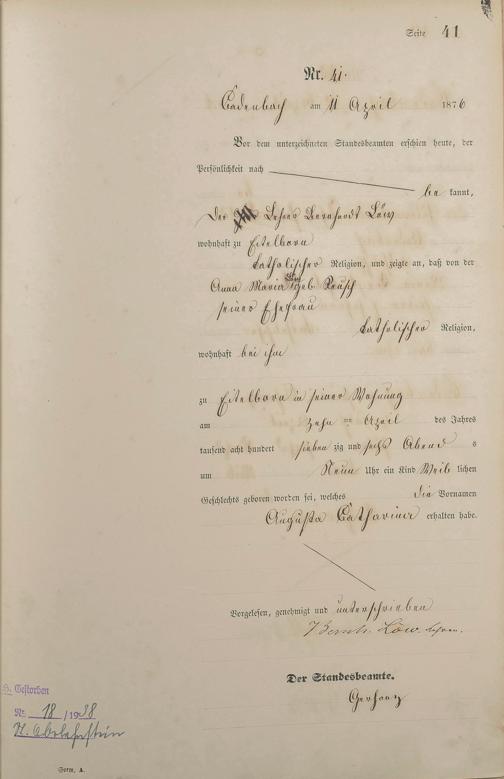 Seite 41
Nr. 41.
Cadenbach am 11 April 1876
Vor dem unterzeichneten Standesbeamten erschien heute, der
Persönlichkeit nach
be kannt,
Der Lehrer Bernhardt Löw
wohnhaft zu Eitelborn
katholischer Religion, und zeigte an, daß von der
Anna Maria geb Reusch
seiner Ehefrau
katholischer Religion,
wohnhaft bei ihm
zu Eitelborn in seiner Wohnung
am zehn ten April des Jahres
tausend acht hundert sieben zig und sechs Abend s
um Neun Uhr ein Kind Weib lichen
Geschlechts geboren worden sei, welches die Vornamen
Augusta Catharina erhalten habe.
Vorgelesen, genehmigt und unterschrieben
Bernh. Löw
Der Standesbeamte.
Gestorben
Nr. 18 / 1938
Form. A.